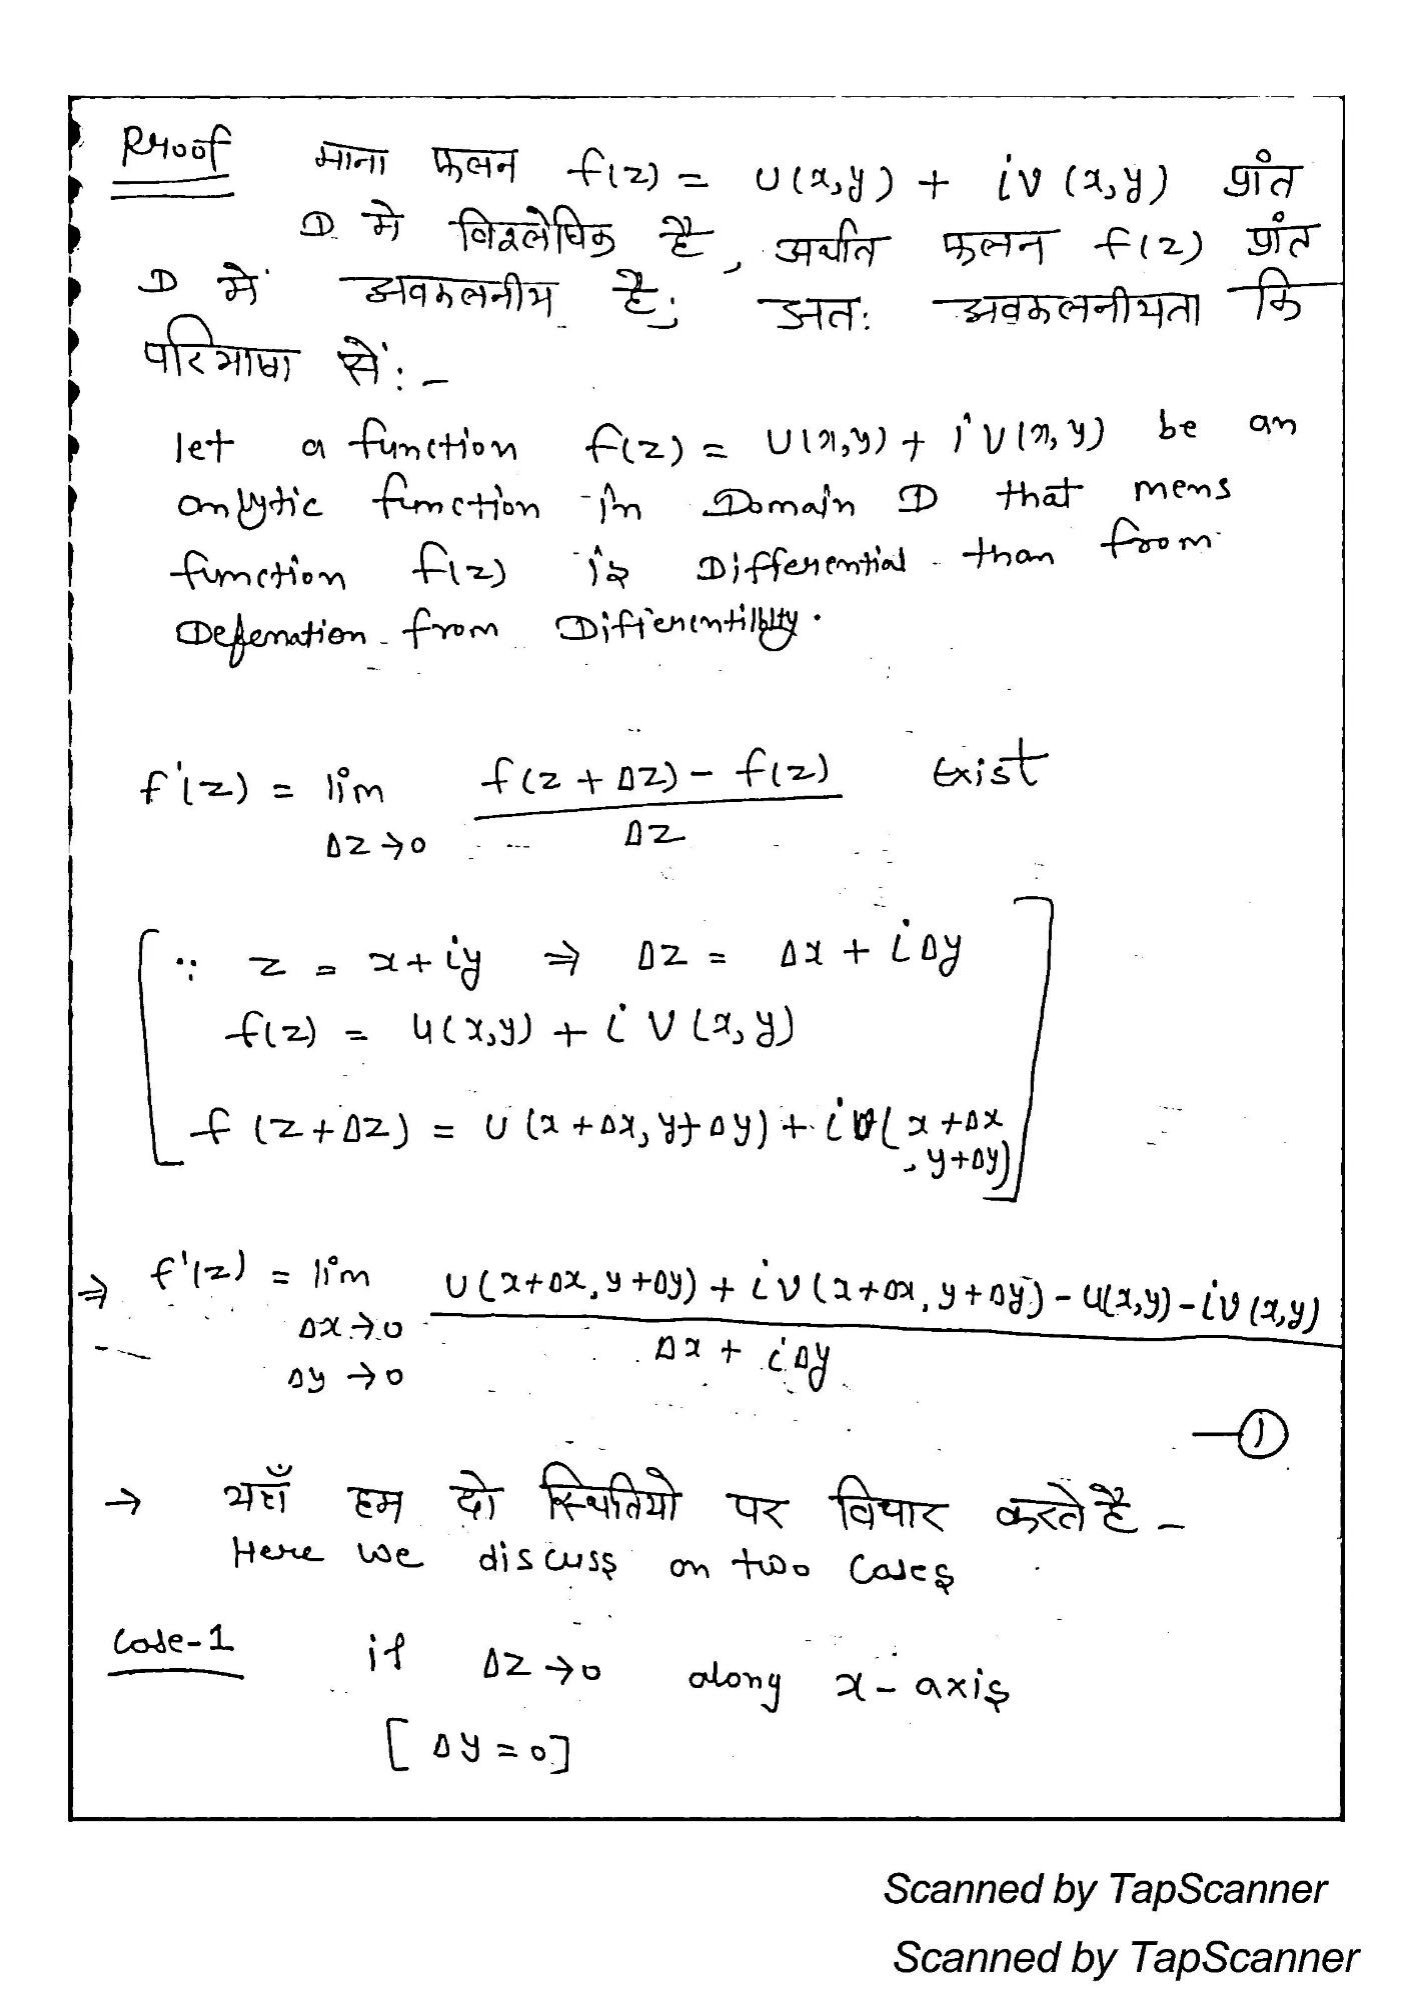 Proof माना फलन f(z) = U(x,y) + iV(x,y) प्रांत
D मे विश्लेषिक है, अर्थात फलन f(z) प्रांत
D में अवकलनीय है; अतः अवकलनीयता कि
परिभाषा सें:-
let a function f(z) = U(x,y) + iV(x,y) be an
anlytic function in Domain D that mens
function f(z) is Differential than from
Defenation from Differentilblity.
f'(z) = lim f(z + Δz) - f(z) Exist
Δz→0 Δz
[∵ z = x+iy ⇒ Δz = Δx + iΔy
f(z) = u(x,y) + iV(x,y)
f(z+Δz) = U(x+Δx, y+Δy) + iv(x+Δx
, y+Δy)]
⇒ f'(z) = lim U(x+Δx, y+Δy) + iV(x+Δx, y+Δy) - u(x,y) - iV(x,y)
Δx→0 Δx + iΔy
Δy→0
—①
→ यहाँ हम दो स्थितियो पर विचार करते है -
Here we discuss on two cases
Case-1 if Δz→0 along x-axis
[Δy=0]
Scanned by TapScanner
Scanned by TapScanner